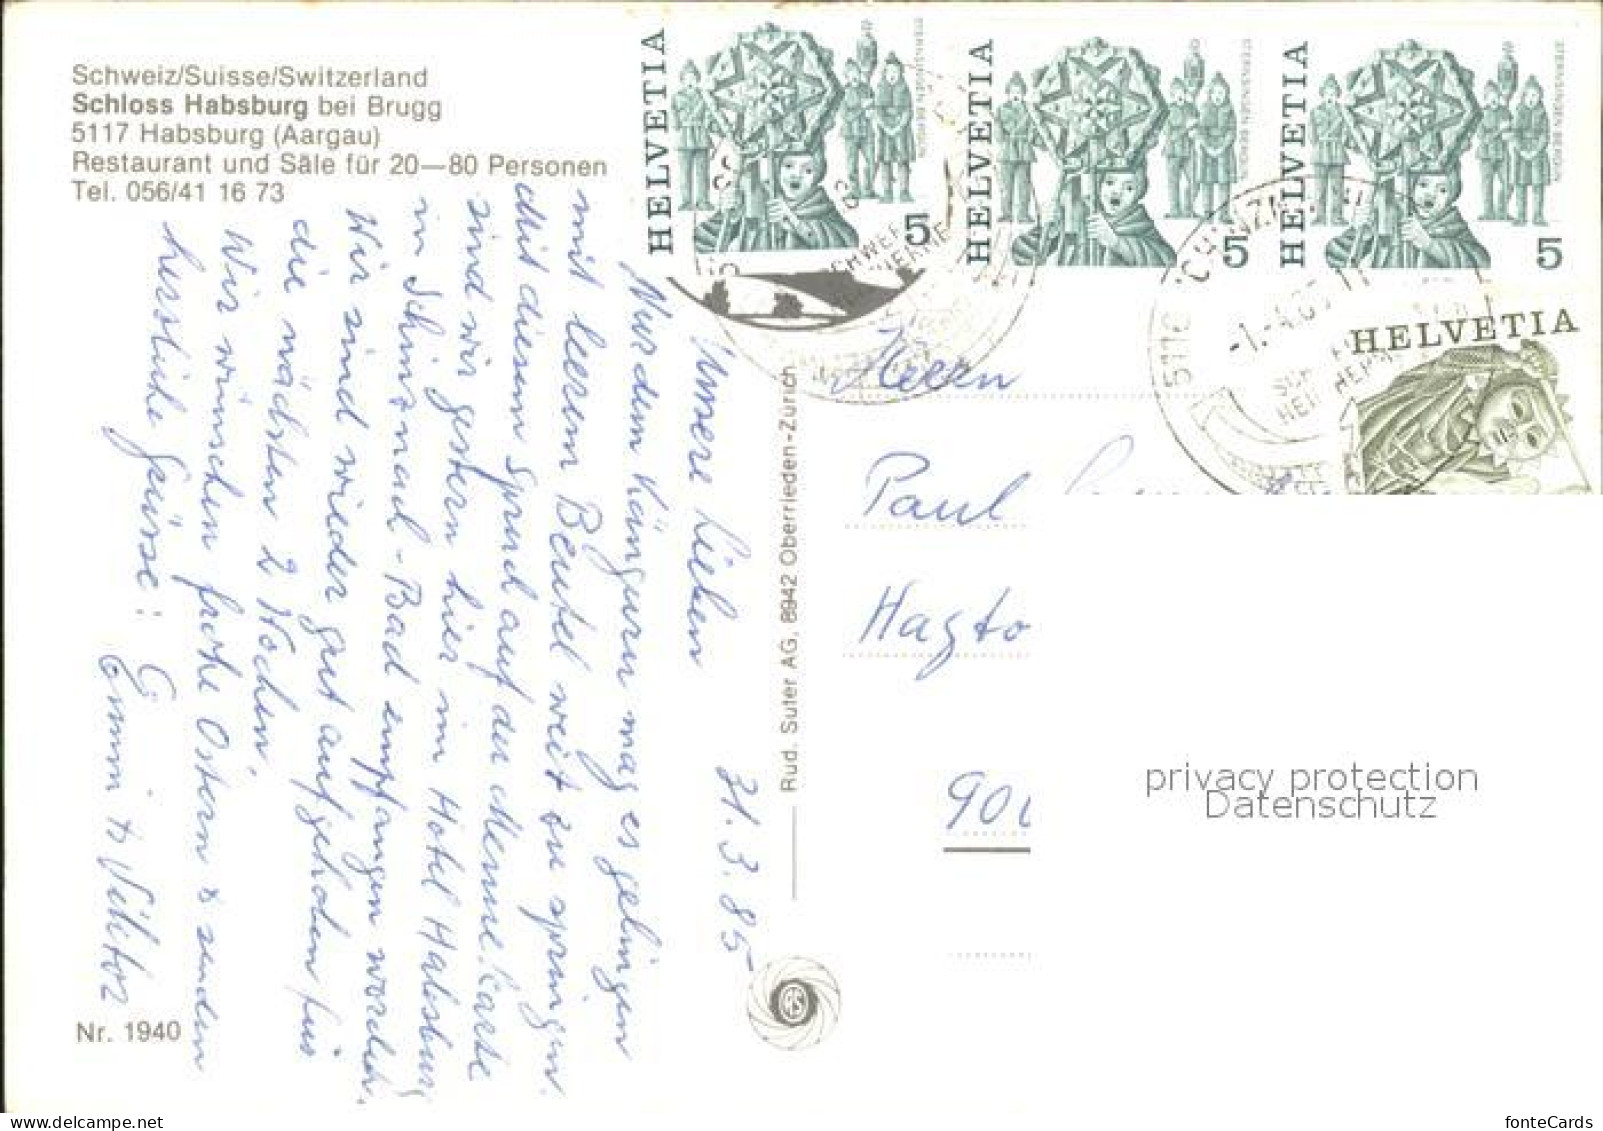 Schweiz/Suisse/Switzerland
Schloss Habsburg bei Brugg
5117 Habsburg (Aargau)
Restaurant und Säle für 20—80 Personen
Tel. 056/41 16 73
31.3.85
Unsere Lieben
Nur dem Känguru mag es gelingen
mit leerem Beutel weit zu springen.
Mit diesem Spruch auf der Menue Karte
sind wir gestern hier im Hotel Habsburg
in Schinznach-Bad empfangen worden.
Wir sind wieder gut aufgehoben für
die nächsten 2 Wochen.
Wir wünschen frohe Ostern & senden
herzliche Grüsse: Emmi & Viktor
Nr. 1940
Rud. Suter AG, 8942 Oberrieden-Zürich
RS
HELVETIA
5
STERNSINGEN BERGÜN
HELVETIA
5
STERNSINGEN BERGÜN
HELVETIA
5
STERNSINGEN BERGÜN
HELVETIA
5116 SCHINZNACH
-1.-4.85
Herrn
Paul
Hagto
900
privacy protection
Datenschutz
fonteCards